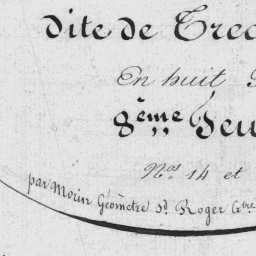 dite de Trec
En huit
8ème Feu
Nos 14 et
par Morin Géomètre Sr. Roger